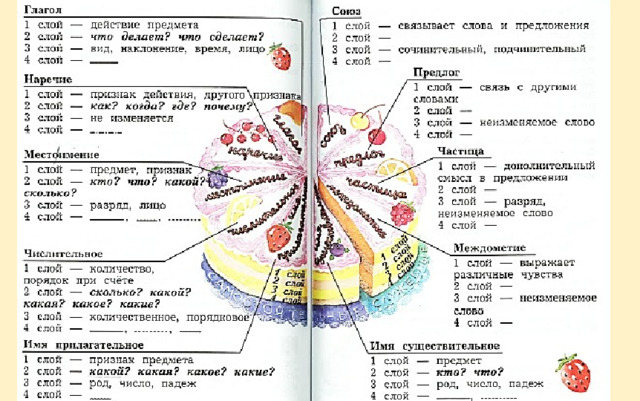 Глагол
1 слой — действие предмета
2 слой — что делает? что сделает?
3 слой — вид, наклонение, время, лицо
4 слой — ____
Наречие
1 слой — признак действия, другого признака
2 слой — как? когда? где? почему?
3 слой — не изменяется
4 слой — _._._.
Местоимение
1 слой — предмет, признак
2 слой — кто? что? какой?
сколько?
3 слой — разряд, лицо
4 слой — ____, ____, .......
Числительное
1 слой — количество,
порядок при счёте
2 слой — сколько? какой?
какая? какое? какие?
3 слой — количественное, порядковое
4 слой — ____, ......., ____
Имя прилагательное
1 слой — признак предмета
2 слой — какой? какая? какое? какие?
3 слой — род, число, падеж
4 слой — ____
Союз
1 слой — связывает слова и предложения
2 слой —
3 слой — сочинительный, подчинительный
4 слой —
Предлог
1 слой — связь с другими
словами
2 слой —
3 слой — неизменяемое слово
4 слой —
Частица
1 слой — дополнительный
смысл в предложении
2 слой —
3 слой — разряд,
неизменяемое слово
4 слой —
Междометие
1 слой — выражает
различные чувства
2 слой —
3 слой — неизменяемое
слово
4 слой —
Имя существительное
1 слой — предмет
2 слой — кто? что?
3 слой — род, число, падеж
4 слой — ____, .......
глагол
наречие
местоимение
числительное
союз
предлог
частица
междометие
1 слой
2 слой
3 слой
4 слой
1 слой
2 слой
3 слой
4 слой